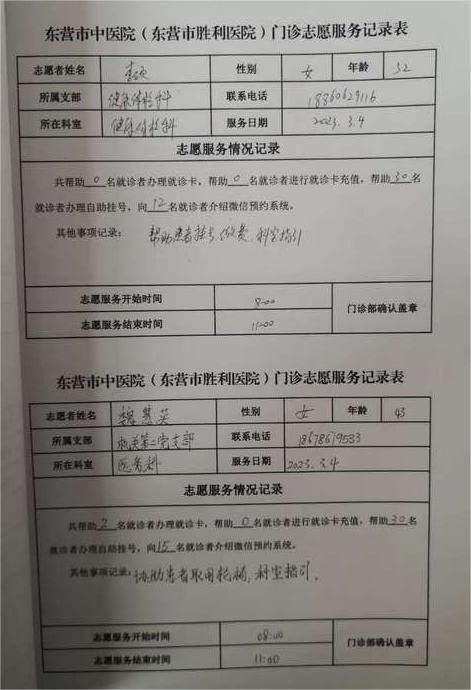 东营市中医院（东营市胜利医院）门诊志愿服务记录表
志愿者姓名 李硕 性别 女 年龄 32
所属支部 健康体检科 联系电话 18860629116
所在科室 健康体检科 服务日期 2023.3.4
志愿服务情况记录
共帮助0名就诊者办理就诊卡，帮助0名就诊者进行就诊卡充值，帮助30名
就诊者办理自助挂号，向12名就诊者介绍微信预约系统。
其他事项记录： 帮助患者挂号、缴费、科室指引
志愿服务开始时间 8:00 门诊部确认盖章
志愿服务结束时间 11:00
东营市中医院（东营市胜利医院）门诊志愿服务记录表
志愿者姓名 魏慧英 性别 女 年龄 43
所属支部 机关第二党支部 联系电话 18678679533
所在科室 医务科 服务日期 2023.3.4
志愿服务情况记录
共帮助2名就诊者办理就诊卡，帮助0名就诊者进行就诊卡充值，帮助30名
就诊者办理自助挂号，向15名就诊者介绍微信预约系统。
其他事项记录：协助患者取用轮椅，科室指引。
志愿服务开始时间 08:00 门诊部确认盖章
志愿服务结束时间 11:00